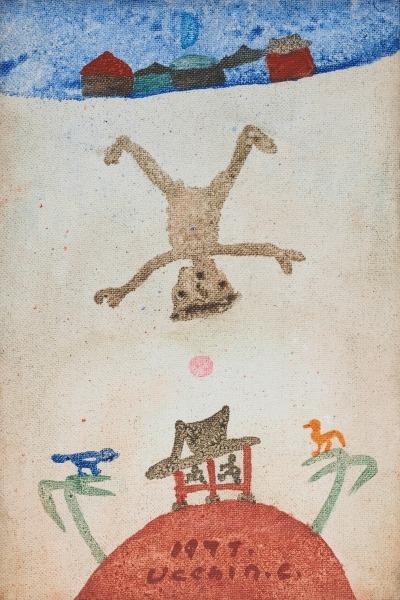 1977.
UCCHIN.C.